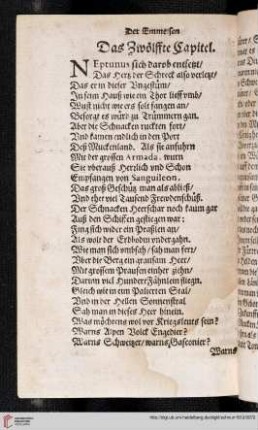 Der Emmeisen
Das Zwölffte Capitel.
NEptunus sich darob entsetzt/
Das Hertz der Schreck also verletzt/
Das er in dieser Ungestüm/
In seim Hauß wie ein Thor lieff umb/
Wust nicht wie ers solt fangen an/
Besorgt es würd zu Trümmern gan.
Aber die Schnacken ruckten fort/
Und kamen endlich in den Port
Deß Muckenland. Als sie anfuhrn
Mit der grossen Armada, wurn
Sie vberauß Herrlich und Schon
Empfangen von Sanguileon.
Das groß Geschütz man als abließ/
Und ehr viel Tausend Frewdenschüß.
Der Schnacken Heerschar noch kaum gar
Auß den Schiffen gestiegen war;
Fing sich wider ein Praßlen an/
Als wolt der Erdboden undergahn.
Wie man sich umbsch/ sah man fort/
Vber die Berg ein grausam Heer/
Mit grossem Prausen einher ziehn/
Darvon viel Hundert Fähnlein fliegn.
Gleich wie in eim Polierten Stal/
Und in der Hellen Sonnenstral
Sah man in dieses Heer hinein.
Was möchens wol vor Kriegsleut sein?
Warns Alpen Volck Engedier?
Warns Schweitzer/ warns Gasconier?
Warns